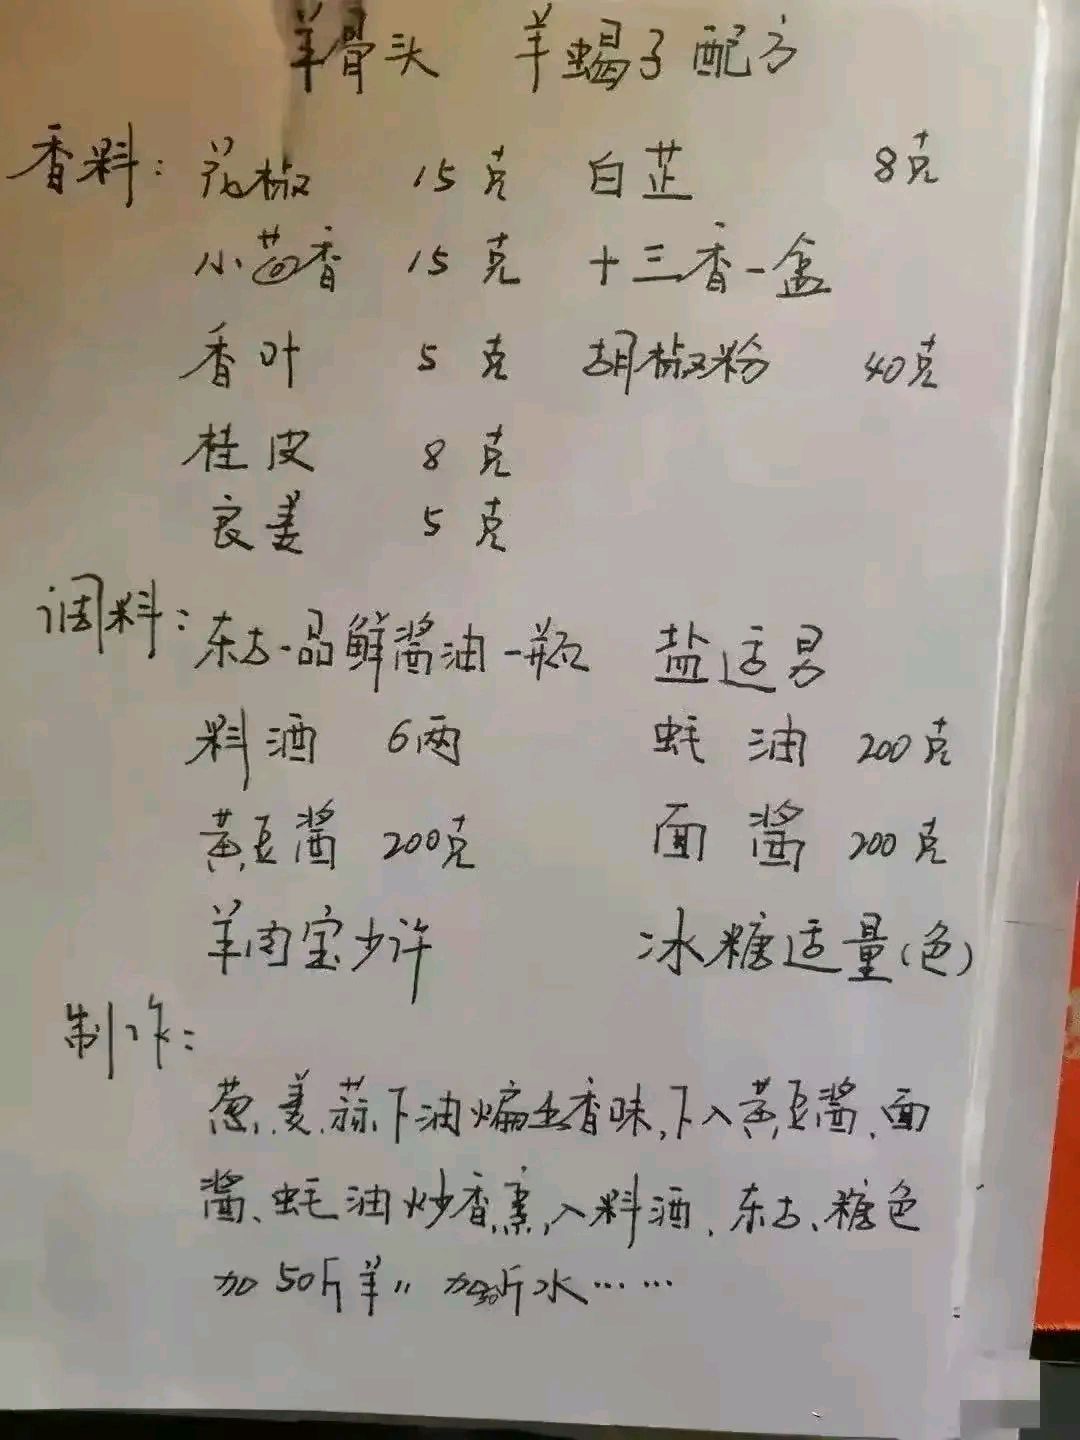 羊骨头 羊蝎子配方
香料：花椒 15克 白芷 8克
小茴香 15克 十三香一盒
香叶 5克 胡椒粉 40克
桂皮 8克
良姜 5克
调料：东古一品鲜酱油一瓶 盐适另
料酒 6两 蚝油 200克
黄豆酱 200克 面酱 200克
羊肉宝少许 冰糖适量(色)
制作：
葱、姜、蒜下油煸出香味,下入黄豆酱、面
酱、蚝油炒香,入料酒、东古、糖色
加50斤羊〃 加 斤水……